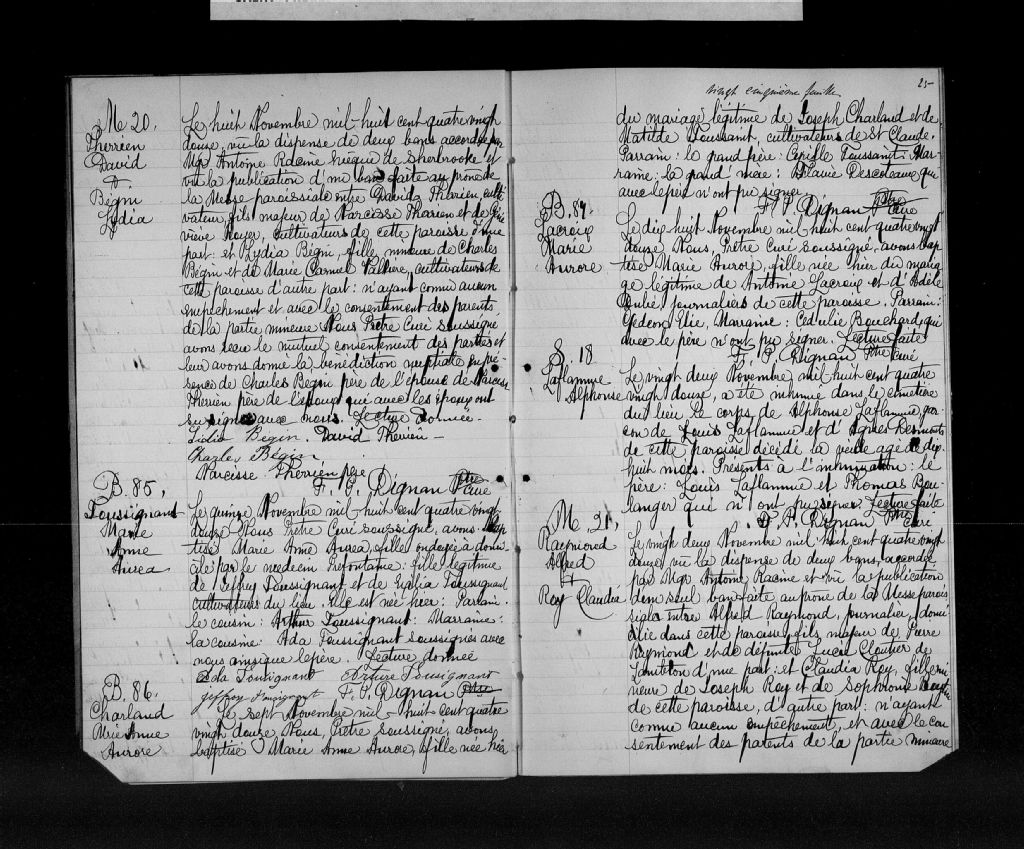 M 20.
Therrien
David
&
Bégin
Lydia
Le huit Novembre mil-huit cent quatre vingt
douze, vu la dispense de deux bans accordée par
Mgr Antoine Racine évêque de Sherbrooke et
vu la publication d'un ban faite au prône de
la Messe paroissiale entre David Therrien culti
vateur, fils majeur de Narcisse Therrien et de
viève Royer, cultivateurs de cette paroisse d'une
part: et Lydia Bégin, fille mineure de Charles
Bégin et de Marie Carmel Vallière, cultivateurs de
cette paroisse d'autre part: n'ayant connu aucun
empêchement et avec le consentement des parents
de la partie mineure Nous Prêtre Curé soussigné
avons recu le mutuel consentement des parties et
leur avons donné la bénédiction nuptiale en pré-
sence de Charles Bégin père de l'épouse de Narcisse
Therrien père de l'époux qui avec les époux ont
signé avec nous. Lecture donnée.
Lidia Bégin. David Therrien
Charles Bégin
Narcisse Therrien père
F. P. Dignan Ptre Curé
B. 85,
Toussignant
Marie
Anne
Aurea
Le quinze Novembre mil-huit cent quatre vingt
douze Nous Prêtre Curé soussigné, avons bap
tisé Marie Anne Aurea, fille ondoyée à domi
cile par le medecin Préfontaine: fille legitime
de Jeffrey Toussignant et de Toussignant
cultivateurs du lieu. Elle est née hier: Parrain:
le cousin: Arthur Toussignant: Marraine:
la cousine: Ada Toussignant soussignés avec
nous ainsique le père. Lecture donnée
Ada Tousignant Arture Tousignant
Jeffrey Tousignant F. P. Dignan Ptre
B. 86.
Charland
Mrie Anne
Aurore
Le sept Novembre mil-huit-cent quatre
vingt douze, Nous, Prêtre soussigné, avons
baptisé Marie Anne Aurore, fille née hier
vingt cinquième feuille
25
du mariage légitime de Joseph Charland et de
Matilde Toussaint, cultivateurs de St Claude.
Parrain: le grand père: Toussaint. Mar-
raine: la grand' mère: Flavie Descoteaux qui
avec le père n'ont pu signer.
F. P. Dignan Ptre Curé
B. 87.
Lacroix
Marie
Aurore
Le dix huit Novembre mil huit cent quatre vingt
douze Nous, Prêtre Curé soussigné, avons bap
tisé Marie Aurore, fille née hier du maria
ge légitime de Antoine Lacroix et d'Adèle
journaliers de cette paroisse. Parrain:
Gédeon Elie, Marraine: Cédulie Bouchard, qui
avec le père n'ont pu signer. Lecture faite
F. P. Dignan Ptre Curé
S. 18
Laflamme
Alphonse
Le vingt deux Novembre mil huit cent quatre
vingt douze, a été inhumé dans le cimetière
du lieu le corps de Alphonse Laflamme, gar
con de Louis Laflamme et d'Agnès
de cette paroisse décédé la veille agé de dix
huit mois. Présents à l'inhumation: le
père: Louis Laflamme et Thomas Bou-
langer qui n'ont pu signer. Lecture faite
F. P. Dignan Ptre Curé
M. 21,
Raymond
Alfred
&
Roy Claudia
Le vingt deux Novembre mil huit cent quatre vingt
douze, vu la dispense de deux bans, accordée
par Mgr Antoine Racine et vu la publication
d'un seul ban faite au prône de la Messe parois
siale entre Alfred Raymond, journalier, domi
cilié dans cette paroisse, fils majeur de Pierre
Raymond et de défunte Lucie Cloutier de
Lambton d'une part: et Claudia Roy, fille mi
neure de Joseph Roy et de Sophronie
de cette paroisse, d'autre part: n'ayant
connu aucun empêchement, et avec le con
sentement des parents de la partie mineure